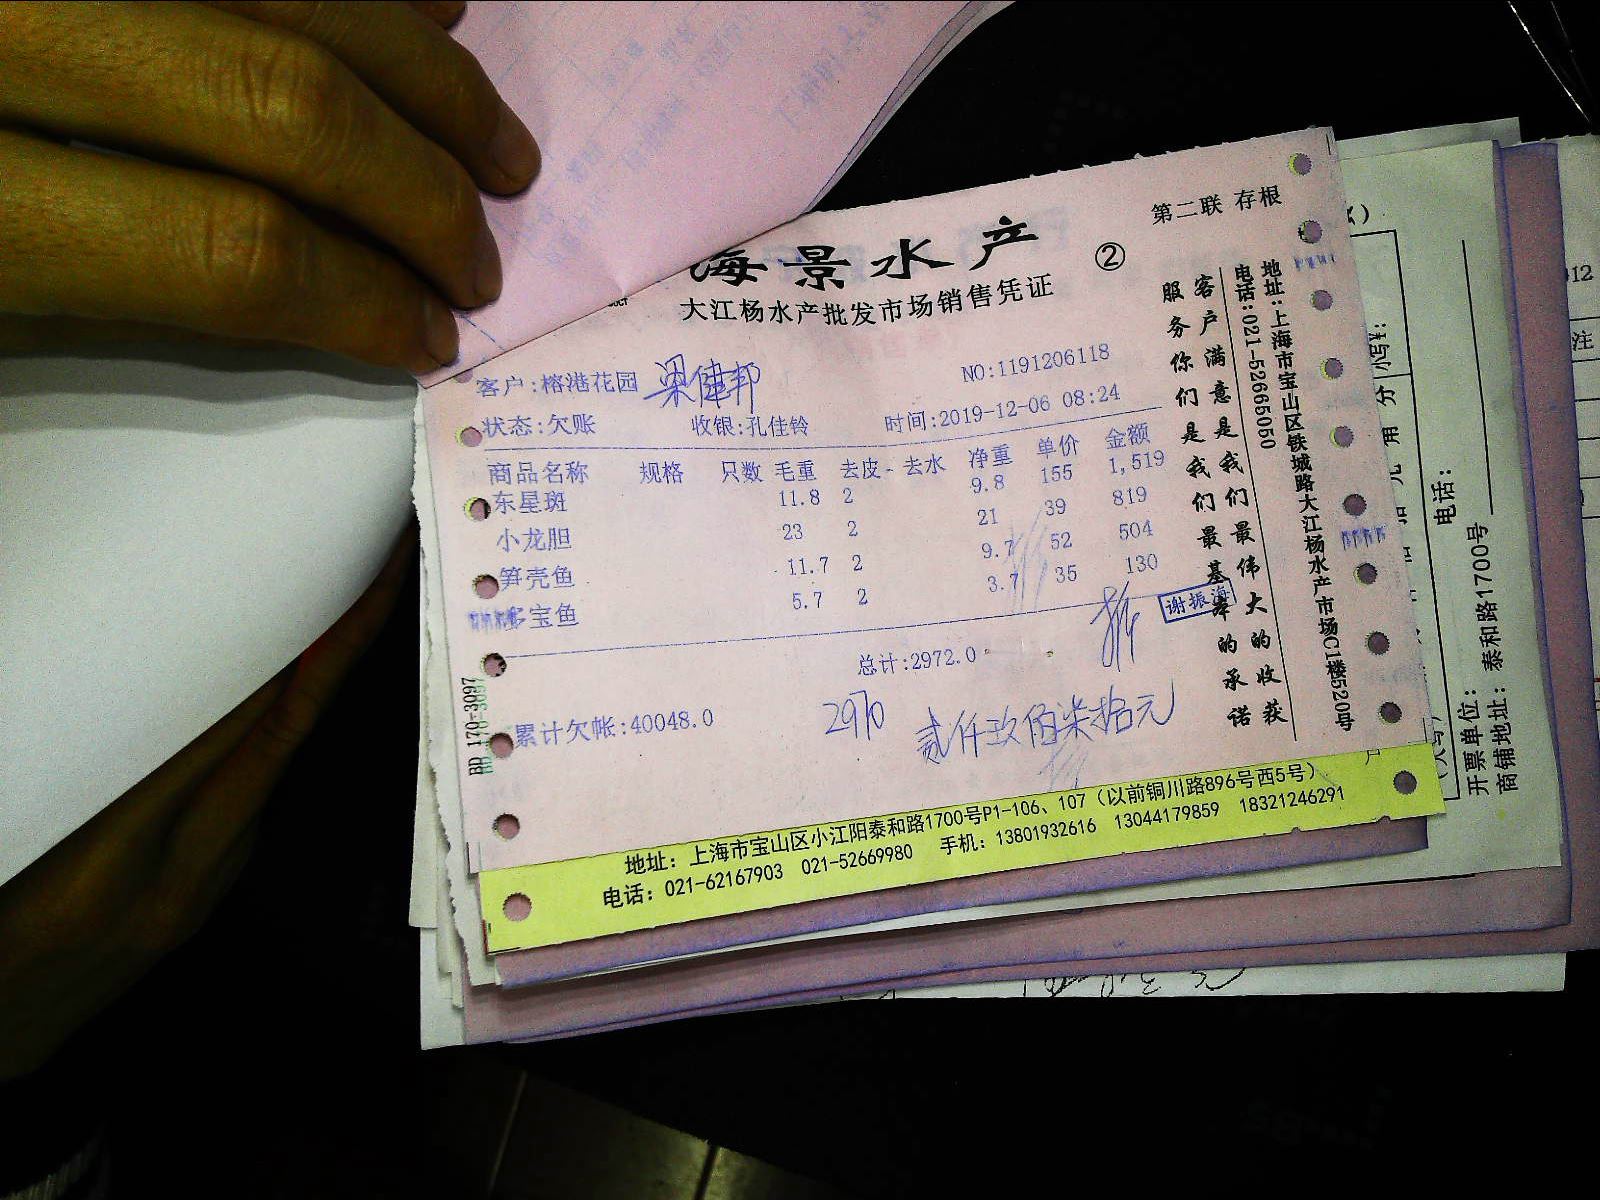 第二联 存根
海景水产 ②
大江杨水产批发市场销售凭证
客户:榕港花园 梁健邦
NO:1191206118
状态:欠账 收银:孔佳铃 时间:2019-12-06 08:24
商品名称 规格 只数 毛重 去皮 去水 净重 单价 金额
东星斑 11.8 2 9.8 155 1,519
小龙胆 23 2 21 39 819
笋壳鱼 11.7 2 9.7 52 504
多宝鱼 5.7 2 3.7 35 130
谢振海
总计:2972.0
累计欠帐:40048.0
2970 贰仟玖佰柒拾元
地址:上海市宝山区铁城路大江杨水产市场C1楼520号
电话:021-52665050
客户满意是我们最伟大的收获
服务你们是我们最基本的承诺
地址：上海市宝山区小江阳泰和路1700号P1-106、107（以前铜川路896号西5号）
电话：021-62167903 021-52669980 手机：13801932616 13044179859 18321246291
BD 170-3097
电话：
开票单位：
商铺地址：泰和路1700号